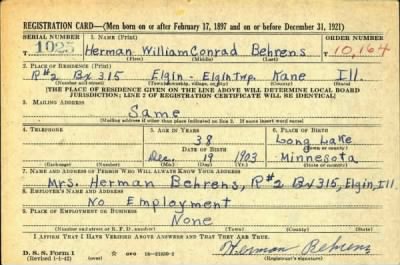 REGISTRATION CARD—(Men born on or after February 17, 1897 and on or before December 31, 1921)
SERIAL NUMBER 1. NAME (Print) ORDER NUMBER
T 1025 Herman William Conrad Behrens T 10,164
(First) (Middle) (Last)
2. PLACE OF RESIDENCE (Print)
R#2 Bx 315 Elgin - Elgin Twp. Kane Ill.
(Number and street) (Town, township, village, or city) (County) (State)
[THE PLACE OF RESIDENCE GIVEN ON THE LINE ABOVE WILL DETERMINE LOCAL BOARD
JURISDICTION; LINE 2 OF REGISTRATION CERTIFICATE WILL BE IDENTICAL]
3. MAILING ADDRESS
Same
(Mailing address if other than place indicated on line 2. If same insert word same)
4. TELEPHONE 5. AGE IN YEARS 6. PLACE OF BIRTH
38 Long Lake
DATE OF BIRTH (Town or county)
Dec. 19 1903 Minnesota
(Exchange) (Number) (Mo.) (Day) (Yr.) (State or country)
7. NAME AND ADDRESS OF PERSON WHO WILL ALWAYS KNOW YOUR ADDRESS
Mrs. Herman Behrens, R#2 Bx 315, Elgin, Ill.
8. EMPLOYER'S NAME AND ADDRESS
No Employment
9. PLACE OF EMPLOYMENT OR BUSINESS
None
(Number and street or R. F. D. number) (Town) (County) (State)
I AFFIRM THAT I HAVE VERIFIED ABOVE ANSWERS AND THAT THEY ARE TRUE.
D. S. S. Form 1
(Revised 1-1-42) (over)
Herman Behrens
(Registrant's signature)